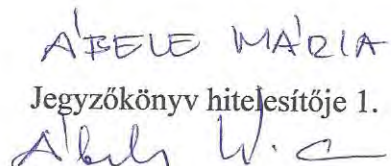 ÁBELE MÁRIA
Jegyzőkönyv hitelesítője 1.